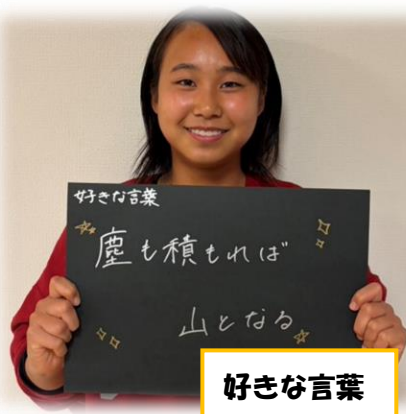 好きな言葉
塵も積もれば
山となる
好きな言葉